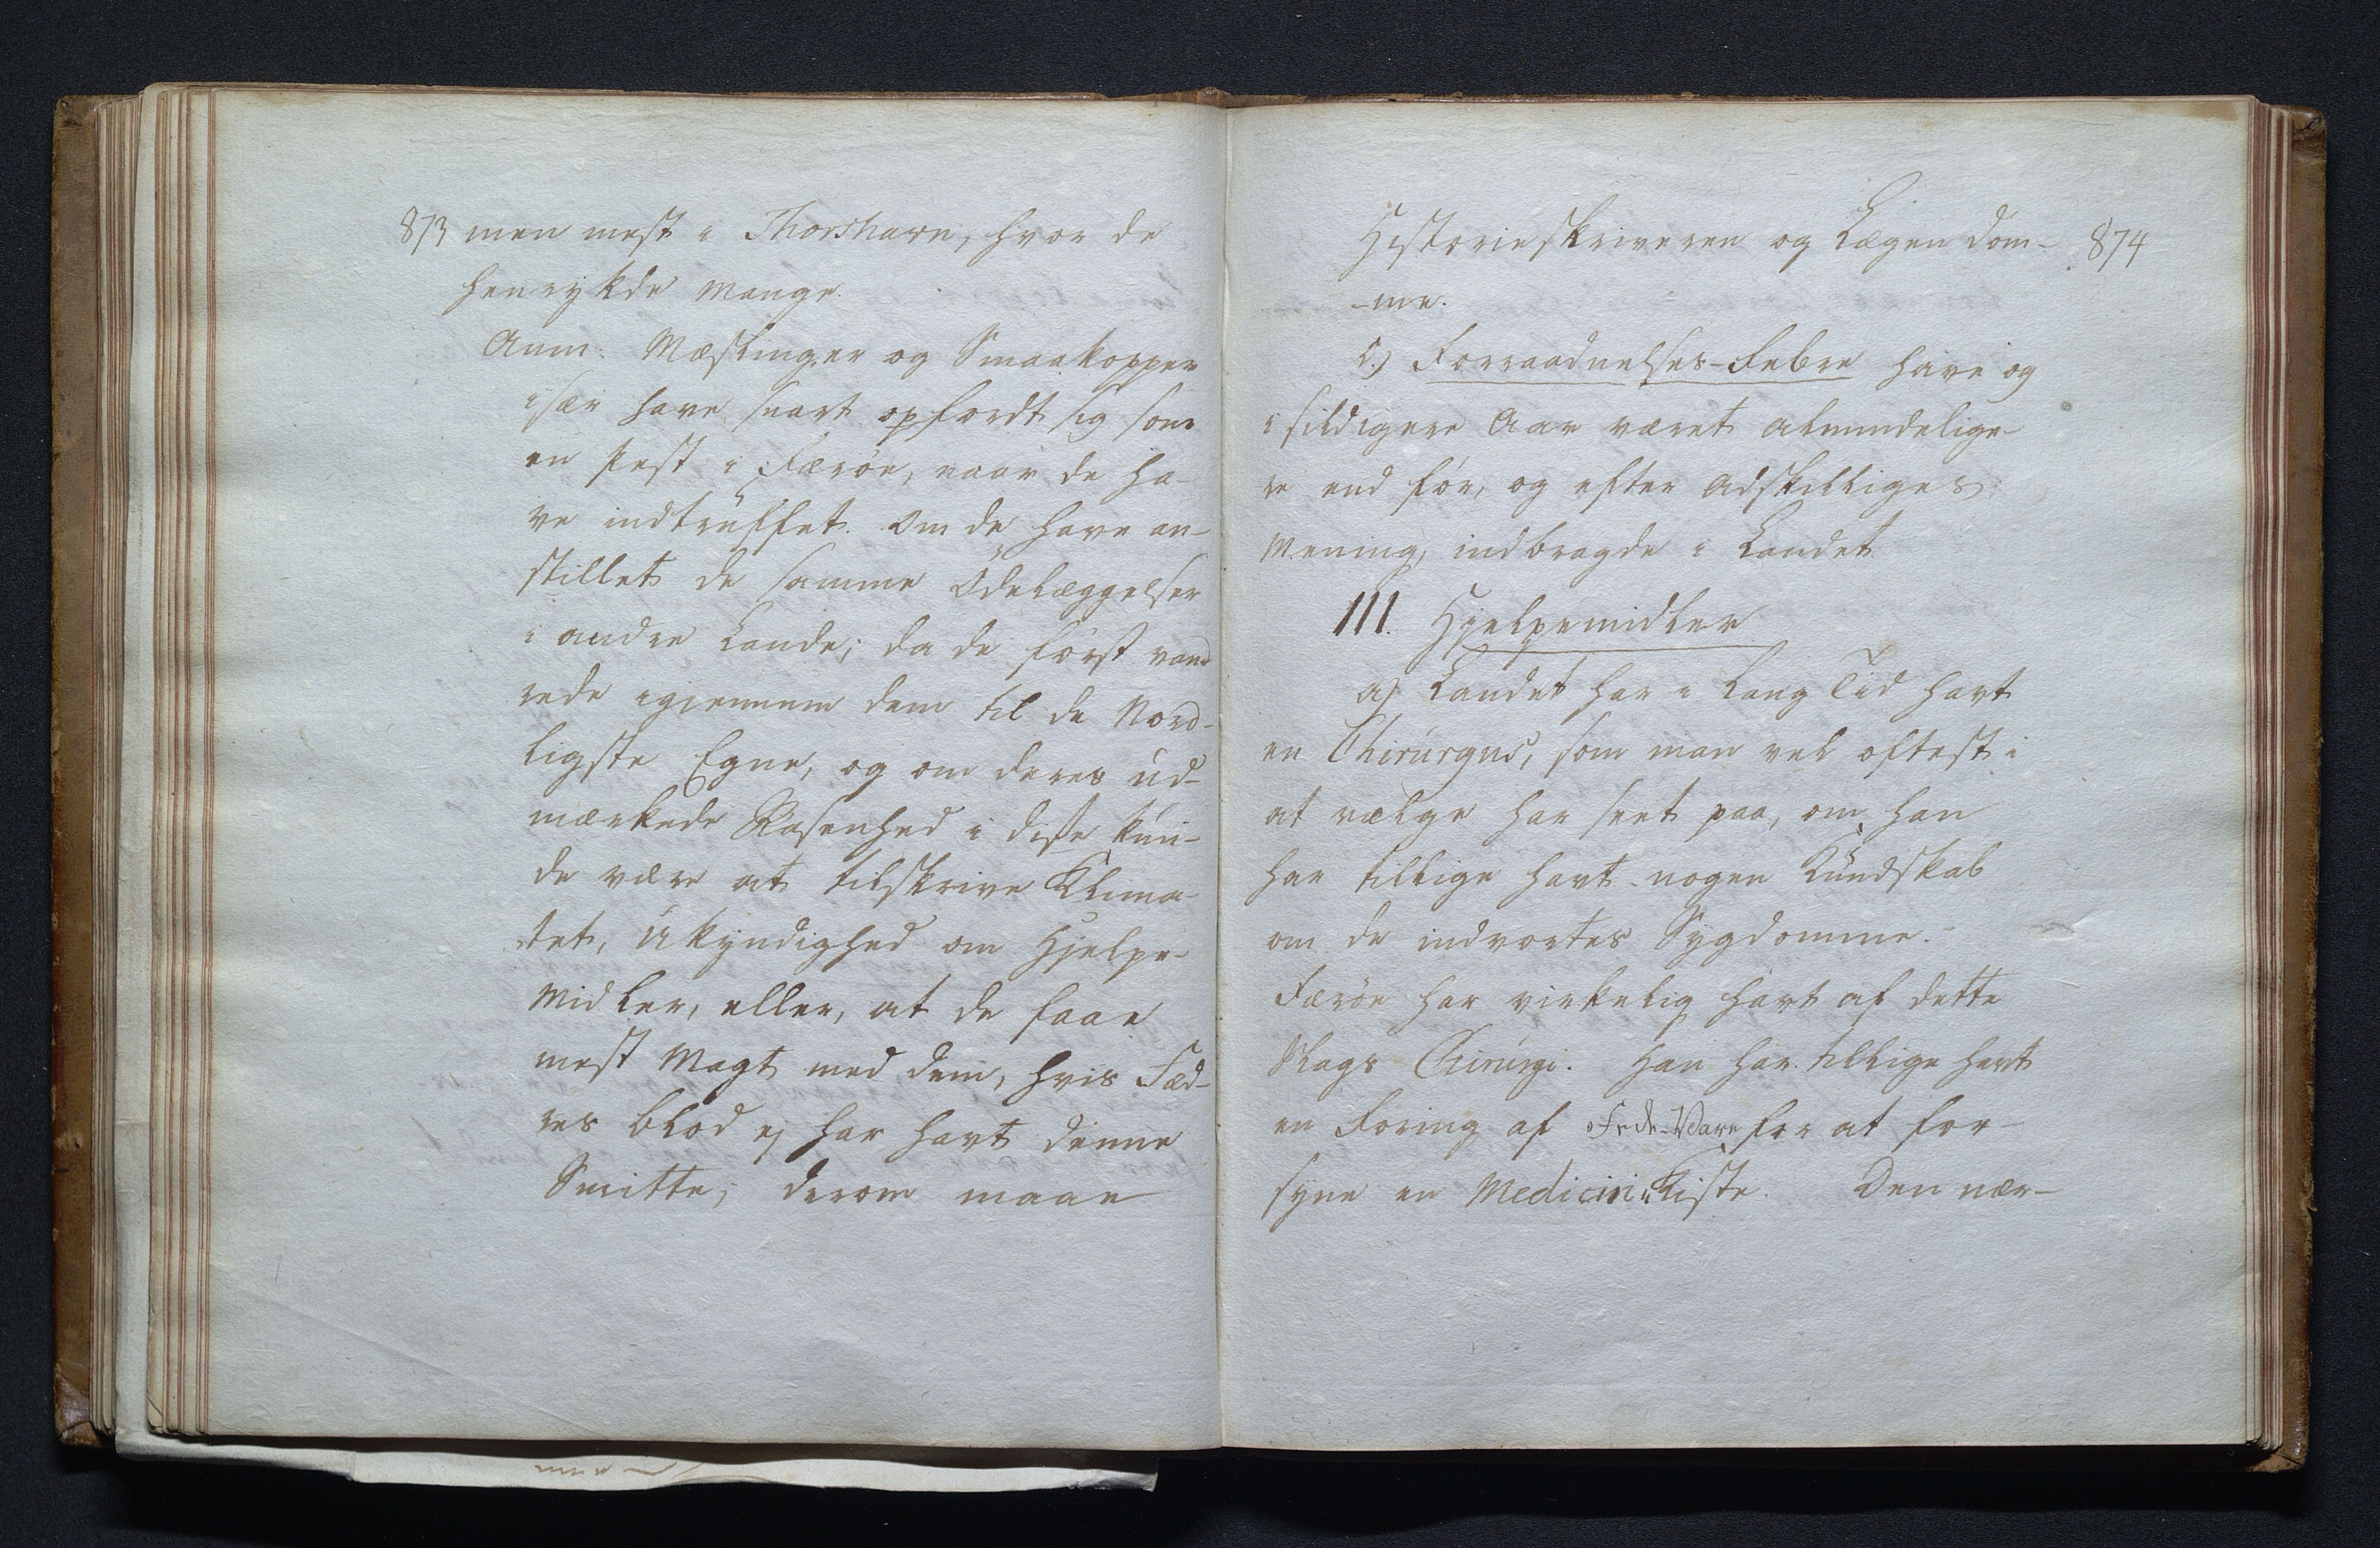 873 men mest i Thorshavn, hvor de
henrykde mange.
Anm: Mæslinger og Smaakopper
især have snart opfordt sig som
en Pest i Færöe, naar de ha-
ve indtruffet. Om de have an-
stillet de samme Ödelæggelser
i andre Lande; da de först vand
rede igiennem dem til de Nord-
ligste Egne, og om deres ud-
mærkede Rasenhed i disse kun-
de være at tilskrive Klima-
tet, Ukyndighed om Hjelpe-
Midler, eller, at de faae
mest Magt med dem, hvis Fæd-
res Blod ej har havt denne
Smitte; derom maae
Historieskriveren og Lægen döm- 874
-me.
c.) Forraadnelses-Febre have og
i sildigere Aar været almindelige-
re end för, og efter Adskilliges
Mening, indbragde i Landet
III. Hjelpemidler
a) Landet har i lang Tid havt
en Chirurgus, som man vel oftest i
at vælge har seet paa, om han
har tillige havt nogen Kundskab
om de indvortes Sygdomme.
Færöe har virkelig havt af dette
Slags Chirurgi. Han har tillige havt
en Foring af Fede-Vare for at for-
syne en Medicin-Kiste. Den nær-